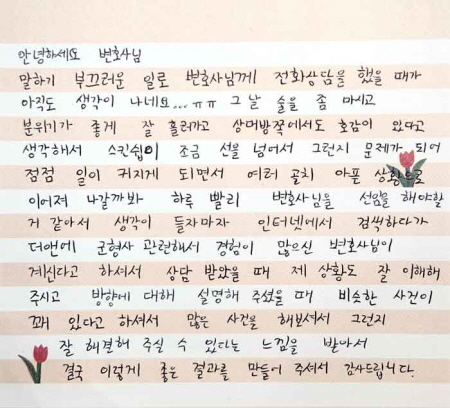 안녕하세요 변호사님
말하기 부끄러운 일로 변호사님께 전화상담을 했을 때가
아직도 생각이 나네요...ㅠㅠ 그 날 술을 좀 마시고
분위기가 좋게 잘 흘러가고 상대방쪽에서도 호감이 있다고
생각해서 스킨쉽이 조금 선을 넘어서 그런지 문제가 되어
점점 일이 커지게 되면서 여러 골치 아픈 상황으로
이어져 나갈까봐 하루 빨리 변호사님을 선임을 해야할
거 같아서 생각이 들자마자 인터넷에서 검색하다가
더앤에 군형사 관련해서 경험이 많으신 변호사님이
계신다고 하셔서 상담 받았을 때 제 상황도 잘 이해해
주시고 방향에 대해 설명해 주셨을 때 비슷한 사건이
꽤 있다고 하셔서 많은 사건을 해보셔서 그런지
잘 해결해 주실 수 있다는 느낌을 받아서
결국 이렇게 좋은 결과를 만들어 주셔서 감사드립니다.